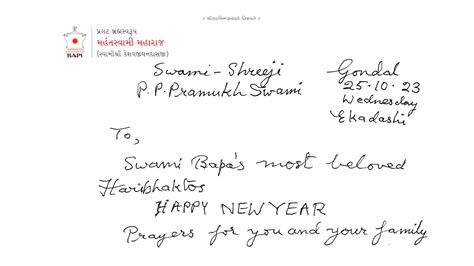 ॥ श्री स्वामिनारायणो विजयते ॥
પ્રગટ બ્રહ્મસ્વરૂપ
મહંતસ્વામી મહારાજ
(સ્વામીશ્રી કેશવજીવનદાસજી)
BAPS
Swami-Shreeji Gondal
P.P.Pramukh Swami 25.10.23
Wednesday
Ekadashi
To,
Swami Bapa's most beloved
Haribhaktos
HAPPY NEW YEAR
Prayers for you and your family